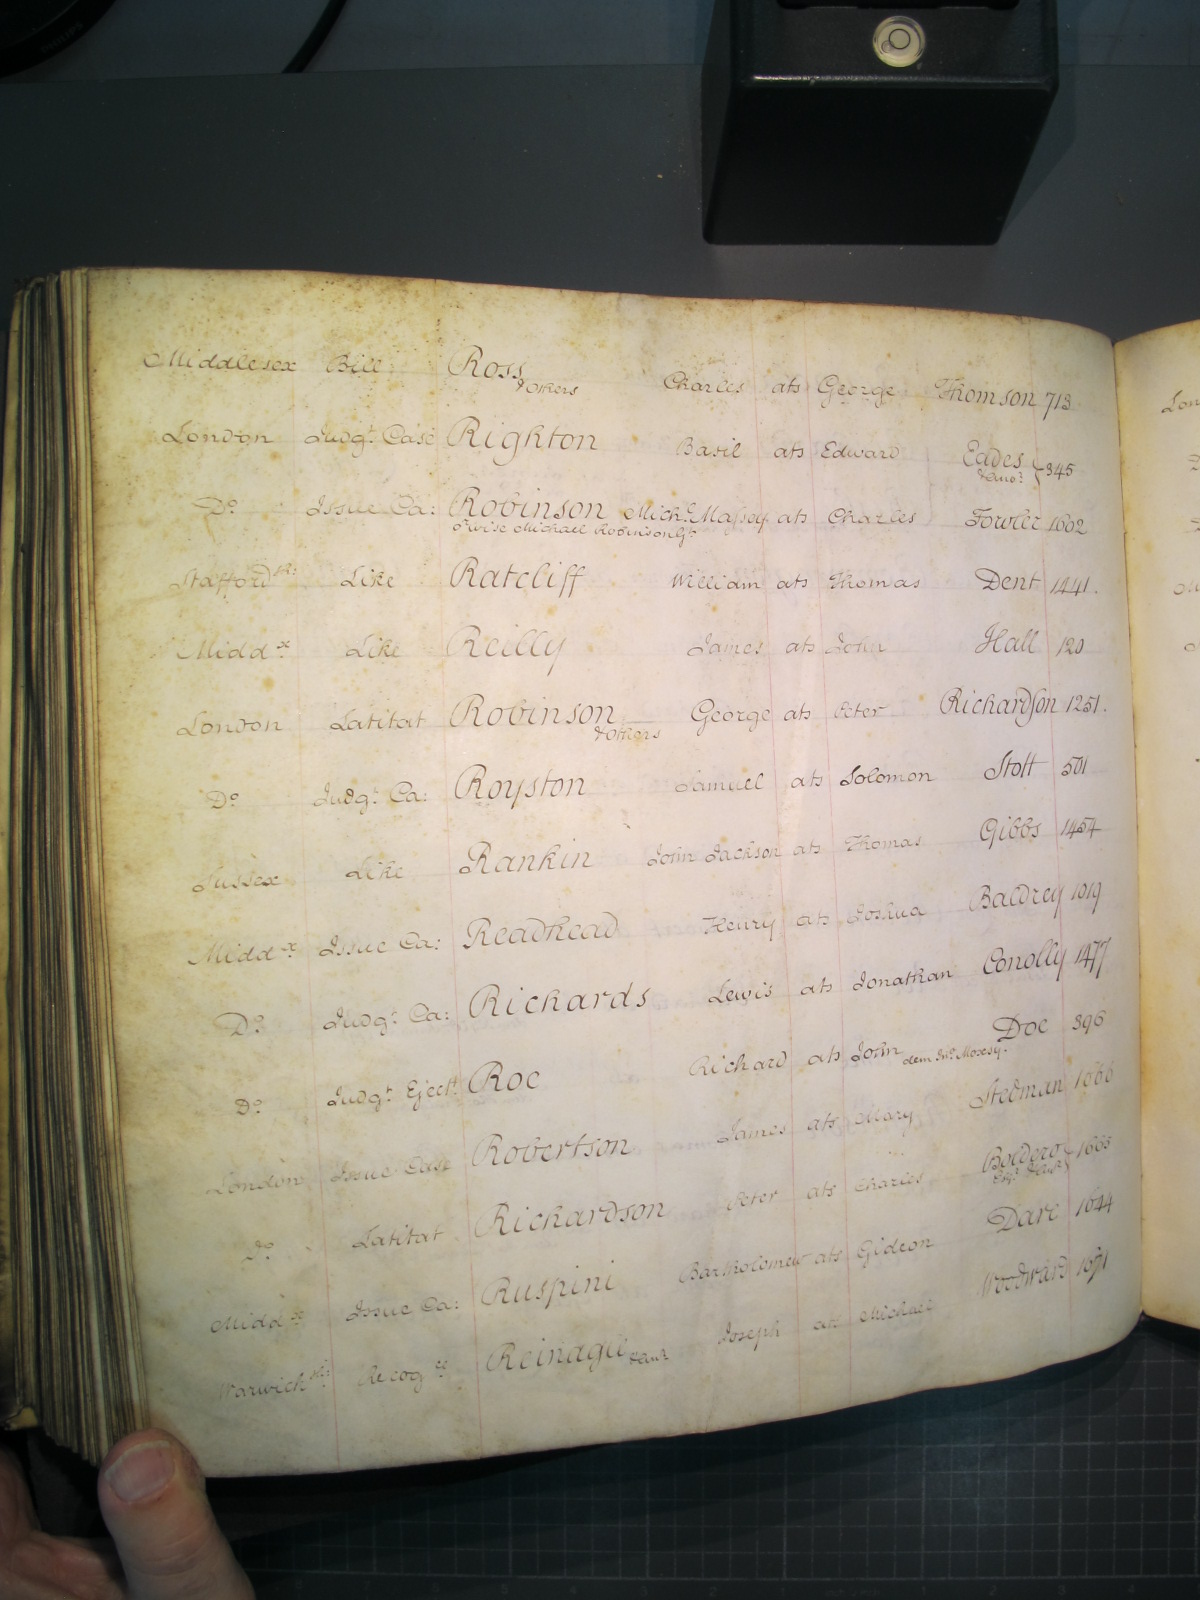 Middlesex Bill Ross & Others Charles ats George Thomson 713
London Judgt. Case Righton Basil ats Edward Eades & ano: 345
Do. Issue Ca: Robinson Michl. Massey ats Charles Fowler 1602
o'wise Michael Robinson
Staffordsh: Like Ratcliff William ats Thomas Dent 1441.
Middx Like Reilly James ats John Hall 120
London Latitat Robinson & Others George ats Peter Richardson 1251.
Do. Judgt. Ca: Royston Samuel ats Solomon Stott 501
Sussex Like Rankin John Jackson ats Thomas Gibbs 1454
Middx Issue Ca: Readhead Henry ats Joshua Baldrey 1019
Do. Judgt. Ca: Richards Lewis ats Jonathan Conolly 1477
Do. Judgt. Ejectt. Roe Richard ats John dem Doe 396
London Issue Case Robertson James ats Mary Stedman 1666
Do. Latitat Richardson Peter ats Charles Boldero Esqr. & anr. 1665
Middx Issue Ca: Ruspini Bartholomew ats Gideon Dare 1644
Warwicksh: Recogce Reinagle & anr. Joseph ats Michael Woodward 1671
Lon